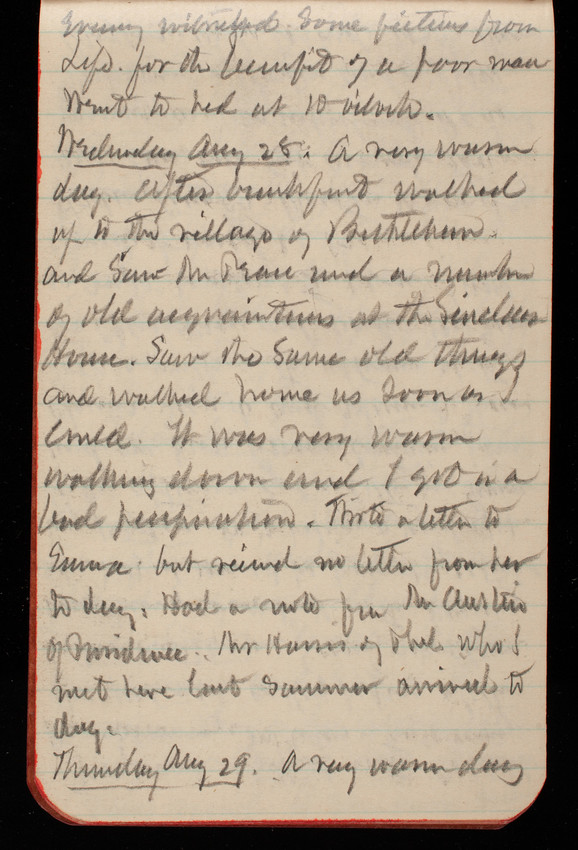 Evening witnessed Some pictures from
Life. for the benefit of a poor man
Went to bed at 10 o'clock.
Wednesday Aug 28. A very warm
day. After breakfast walked
up to the village of Bethlehem.
and Saw Mr and a number
of old acquaintances at the Sinclair
House. Saw the Same old things
and walked home as soon as I
Could. It was very warm
walking down and I got in a
bad perspiration. Wrote a letter to
Emma but recieved no letter from her
to day. Had a note from Mr Austin
of Providence. Mr Harris of Phil. who I
met here last Summer arrived to
day.
Thursday Aug 29. A very warm day